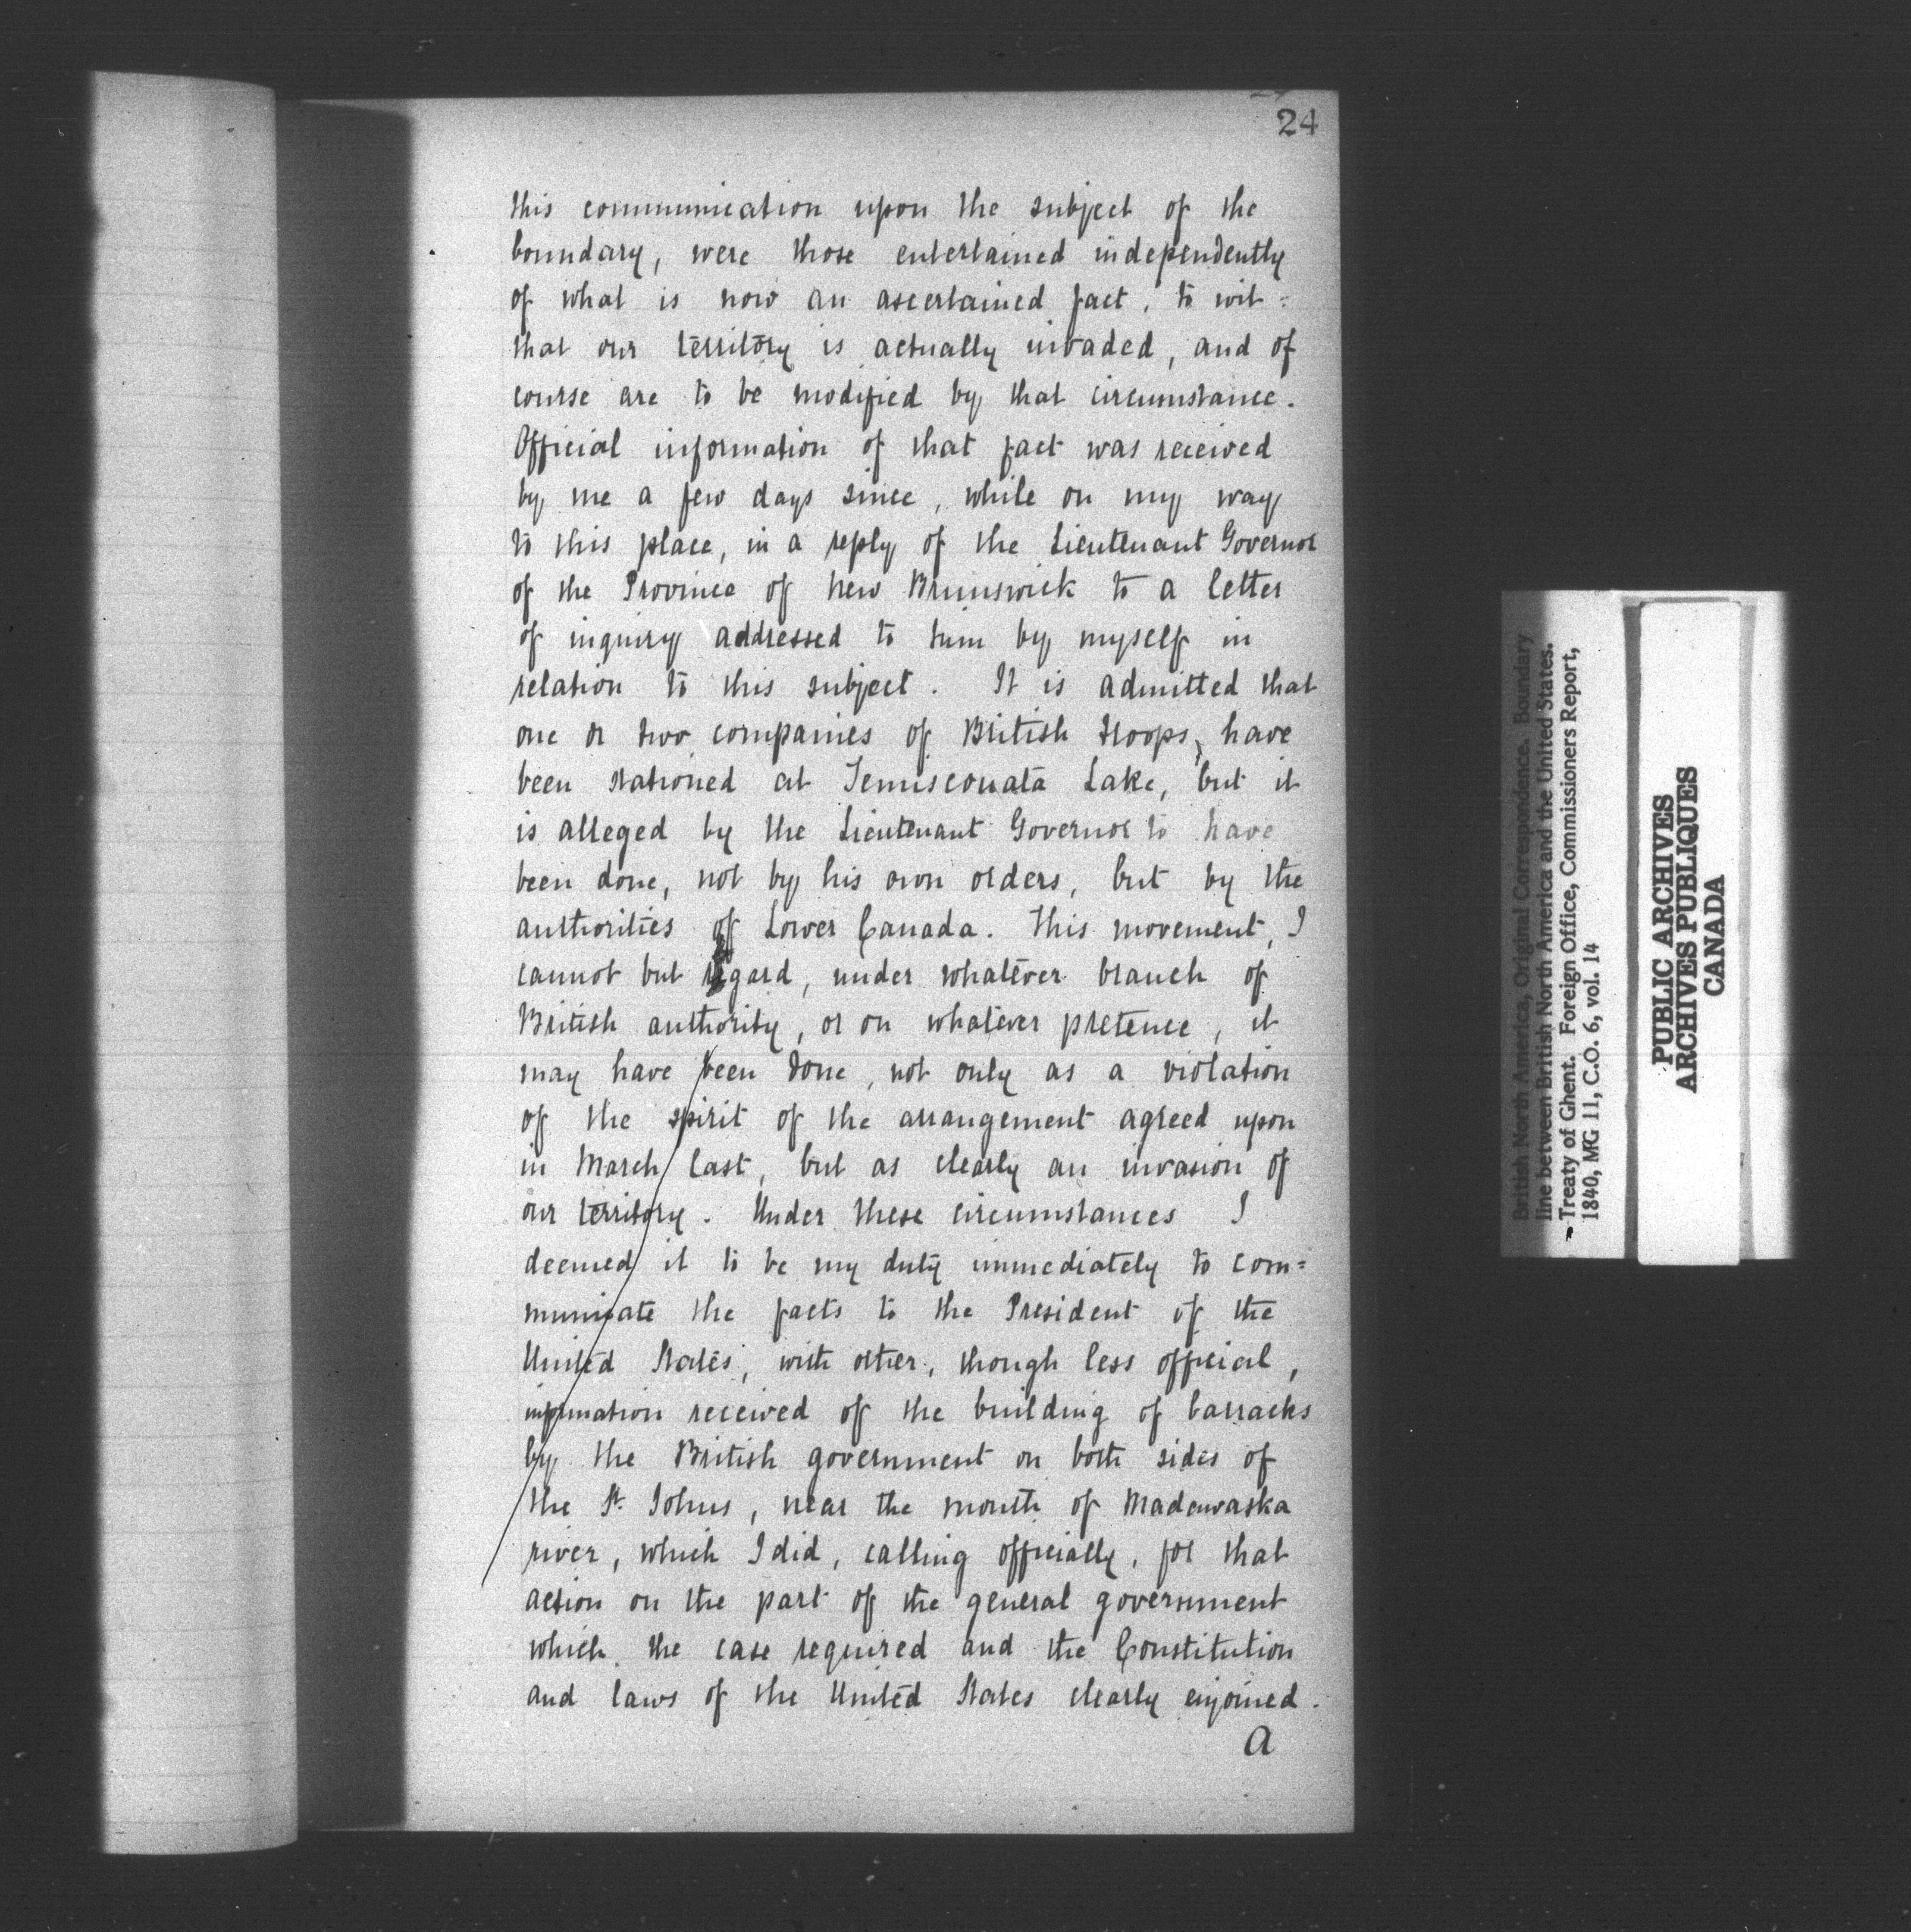 24
this communication upon the subject of the
boundary, were those entertained independently
of what is now an ascertained fact, to wit:
that our territory is actually invaded, and of
course are to be modified by that circumstance.
Official information of that fact was received
by me a few days since, while on my way
to this place, in a reply of the Lieutenant Governor
of the Province of New Brunswick to a letter
of inquiry addressed to him by myself in
relation to this subject. It is admitted that
one or two companies of British troops, have
been stationed at Temiscouata Lake, but it
is alleged by the Lieutenant Governor to have
been done, not by his own orders, but by the
authorities of Lower Canada. This movement, I
cannot but regard, under whatever branch of
British authority, or on whatever pretence, it
may have been done, not only as a violation
of the spirit of the arrangement agreed upon
in March last, but as clearly an invasion of
our territory. Under these circumstances I
deemed it to be my duty immediately to com=
municate the facts to the President of the
United States, with other, though less official,
information received of the building of barracks
by the British government on both sides of
the St. Johns, near the mouth of Madawaska
river, which I did, calling officially, for that
action on the part of the general government
which the case required and the Constitution
and laws of the United States clearly enjoined.
A
British North America, Original Correspondence. Boundary
line between British North America and the United States.
Treaty of Ghent. Foreign Office, Commissioners Report,
1840, MG 11, C.O. 6, vol. 14
PUBLIC ARCHIVES
ARCHIVES PUBLIQUES
CANADA